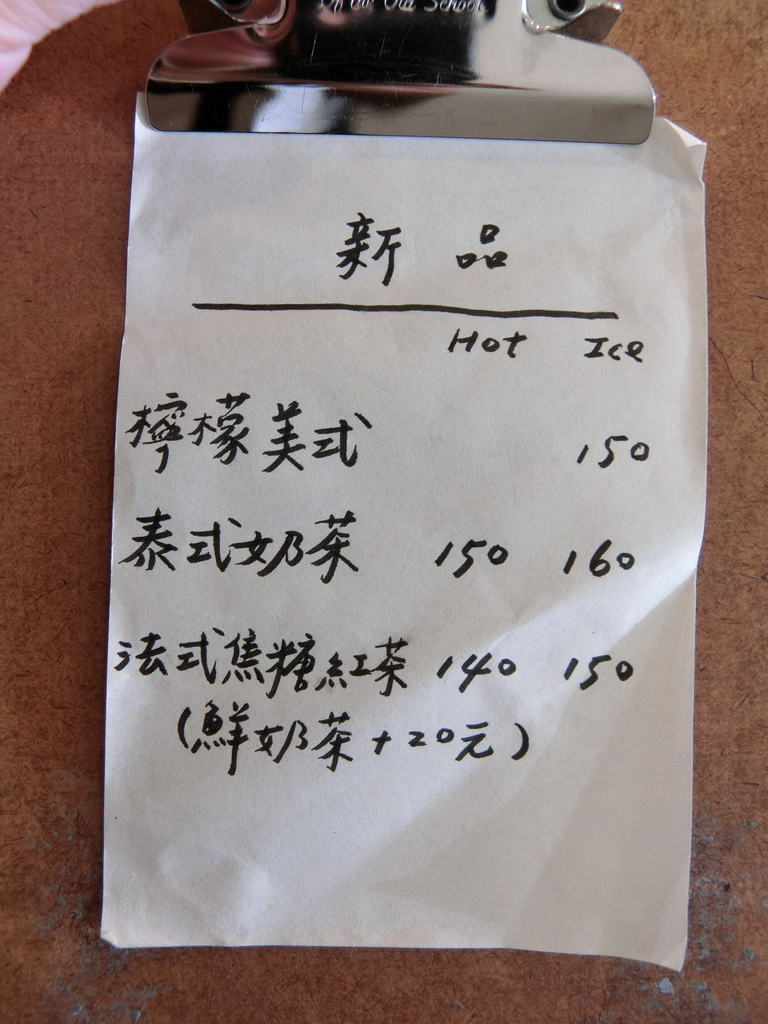 Of an Old School
新 品
Hot Ice
檸檬美式 150
泰式奶茶 150 160
法式焦糖紅茶 140 150
(鮮奶茶+20元)